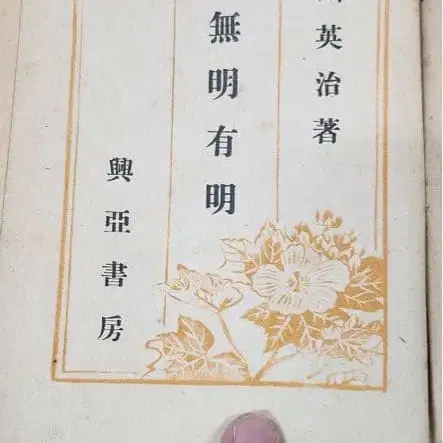 英治著
無明有明
興亞書房